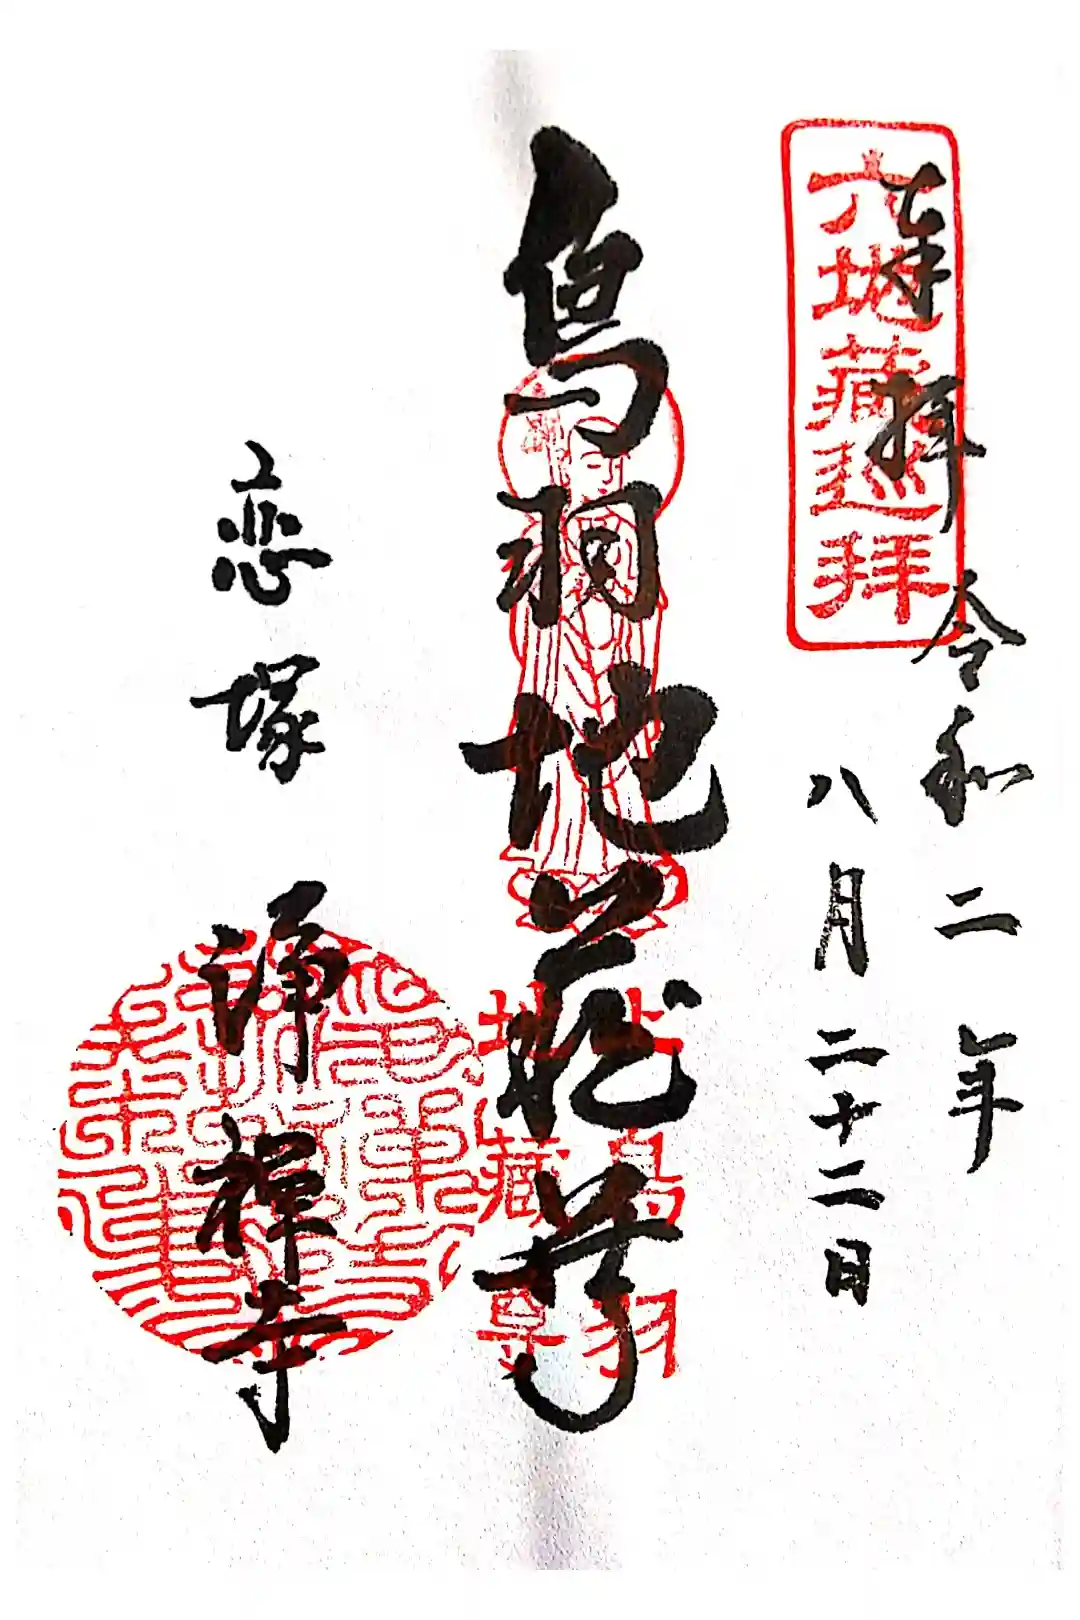 奉拝
六地蔵巡拝
令和二年
八月二十二日
鳥羽地蔵尊
鳥羽
地蔵尊
恋塚 浄禅寺